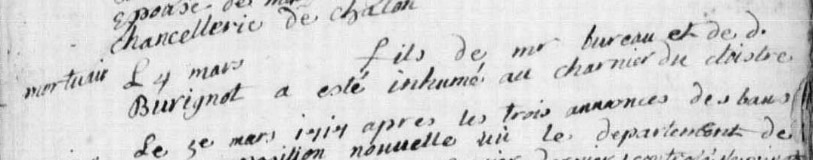 Epouse de mr
chancellerie de chalon
mortuair Le 4 mars fils de mr bureau et de d.
Burignot a esté inhumé au charnier du cloistre
Le 5e mars 1717 apres les trois annonces des bans
nouuelle uü le departement de